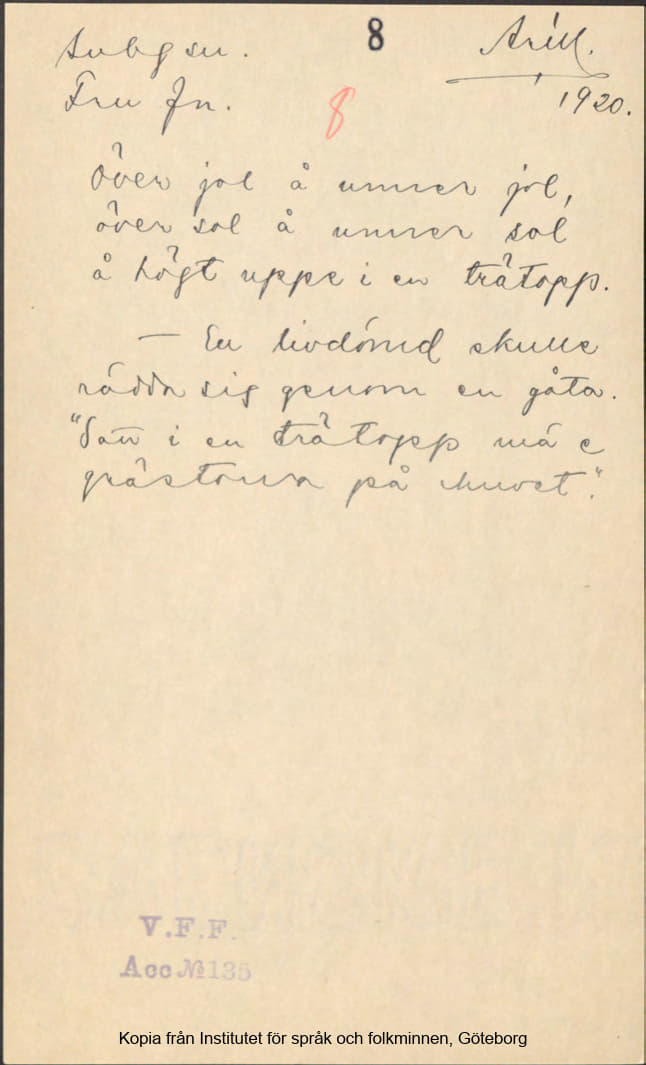 8
1920.
Fru Jn.
8
över jol å unner jol,
över sol å unner sol
å högt uppe i en trätopp.
— En livdömd skulle
rädda sig genom en gåta.
"Satt i en trätopp mä e
grästorva på huvet."
V.F.F.
Acc №135
Kopia från Institutet för språk och folkminnen, Göteborg